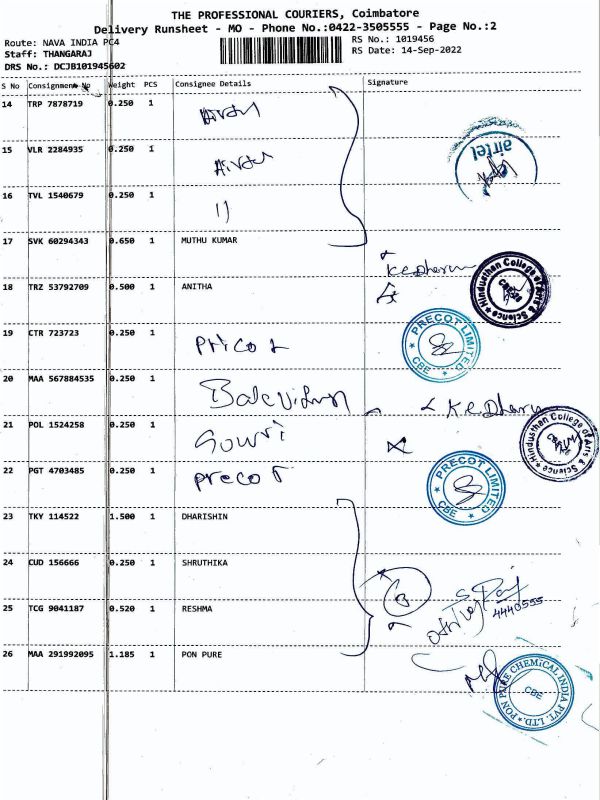 THE PROFESSIONAL COURIERS, Coimbatore
Delivery Runsheet - MO - Phone No.:0422-3505555 - Page No.:2
Route: NAVA INDIA PC4
Staff: THANGARAJ
DRS No.: DCJB101945602
RS No.: 1019456
RS Date: 14-Sep-2022
S No Consignment No Weight PCS Consignee Details Signature
14 TRP 7878719 0.250 1
15 VLR 2284935 0.250 1
airtel
16 TVL 1540679 0.250 1 11
17 SVK 60294343 0.650 1 MUTHU KUMAR
Hindusthan College of Arts & Science
18 TRZ 53792709 0.500 1 ANITHA
19 CTR 723723 0.250 1 Pricot
PRECOT LIMITED CBE
20 MAA 567884535 0.250 1
21 POL 1524258 0.250 1 Gowri
Hindusthan College of Arts & Science
22 PGT 4703485 0.250 1 precot
PRECOT LIMITED CBE
23 TKY 114522 1.500 1 DHARISHIN
24 CUD 156666 0.250 1 SHRUTHIKA
25 TCG 9041187 0.520 1 RESHMA
4440555
26 MAA 291992095 1.185 1 PON PURE
PON PURE CHEMICAL INDIA PVT. LTD. CBE